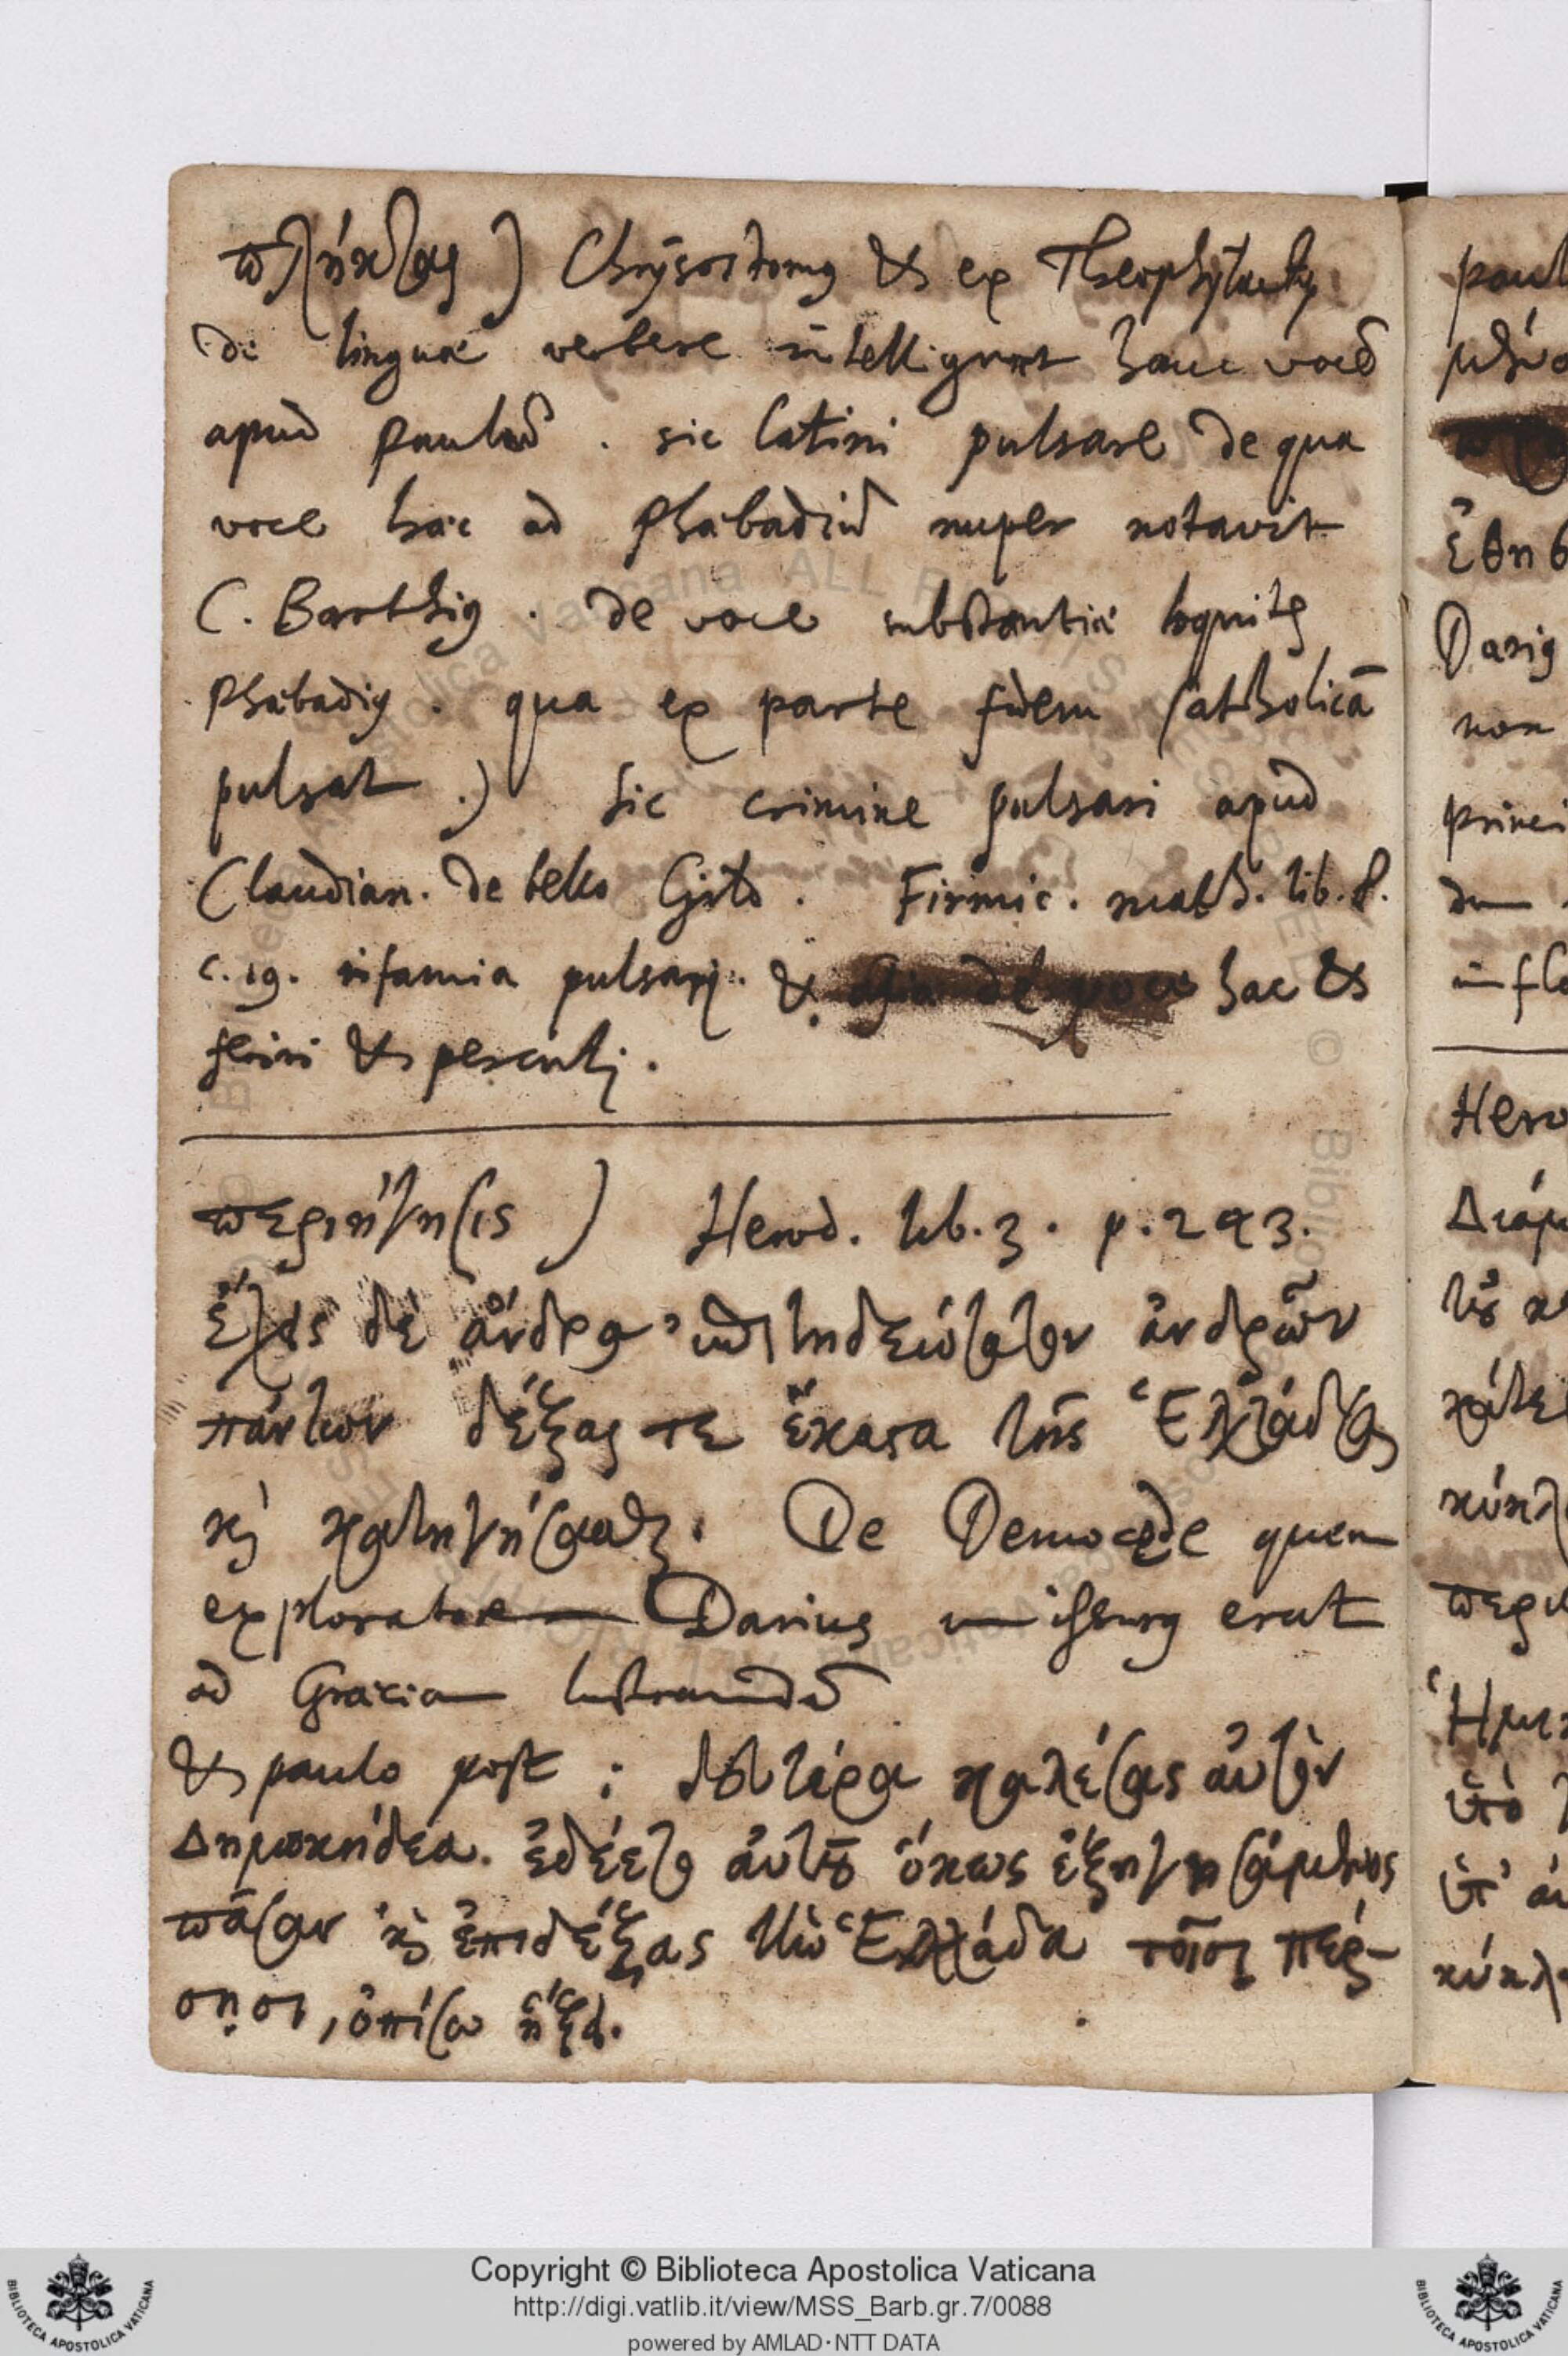 πλήκτας) Chrysostomus & ex Theophylactus
de linguae verbere intelligunt hanc vocẽ
apud Paulũ. sic Latini pulsare de qua
voce hac ad Phaebadiũ nuper notavit
C. Barthius. de voce substantiae loquitur
Phaebadius. qua ex parte fidem Catholicã
pulsat.) Sic crimine pulsari apud
Claudian. de bello Gild. Firmic. math. lib. 8.
c. 19. infamia pulsari. & hac &
feriri & percuti.
περιήγησις) Herod. lib. 3. p. 243.
ἕξεις δὲ ἄνδρα ἐπιτηδειότατον ἀνδρῶν
πάντων δέξας τε ἕκαστα τῆς Ἑλλάδος
καὶ κατηγήσασθαι. De Democede quem
exploratorem Darius missurus erat
ad Graeciam lustrandã
& paulo post: δεύτερα καλέσας αὐτὸν
Δημοκήδεα. ἐδέετο αὐτοῦ ὅκως ἐξηγησάμενος
πᾶσαν καὶ ἐπιδέξας τὴν Ἑλλάδα τοῖσι Πέρ-
σῃσι, ὀπίσω ἥξει.
paul
ἔθησ
Darius
non
princi
dum
infle
Hero
Διάμ
τοῦ κ
κύκλ
περι
Ἡμικ
ὑπὸ
ὑπ' ἀ
κύκλ
Copyright © Biblioteca Apostolica Vaticana
http://digi.vatlib.it/view/MSS_Barb.gr.7/0088
powered by AMLAD·NTT DATA
BIBLIOTECA APOSTOLICA VATICANA
BIBLIOTECA APOSTOLICA VATICANA